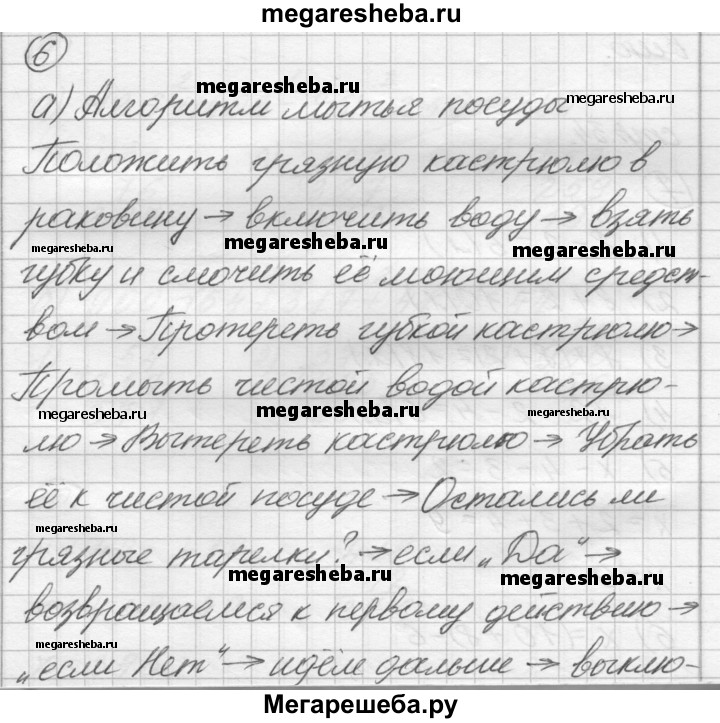 megaresheba.ru
6
megaresheba.ru
а) Алгоритм мытья посуды
megaresheba.ru
Положить грязную кастрюлю в
раковину → включить воду → взять
megaresheba.ru
megaresheba.ru
megaresheba.ru
губку и смочить её моющим средст-
вом → Протереть губкой кастрюлю →
Промыть чистой водой кастрю-
megaresheba.ru
megaresheba.ru
megaresheba.ru
лю → Вытереть кастрюлю → Убрать
её к чистой посуде → Остались ли
megaresheba.ru
грязные тарелки? → если „Да“ →
megaresheba.ru
megaresheba.ru
возвращаемся к первому действию →
megaresheba.ru
„если Нет“ → идём дальше → выклю-
Мегарешеба.ру